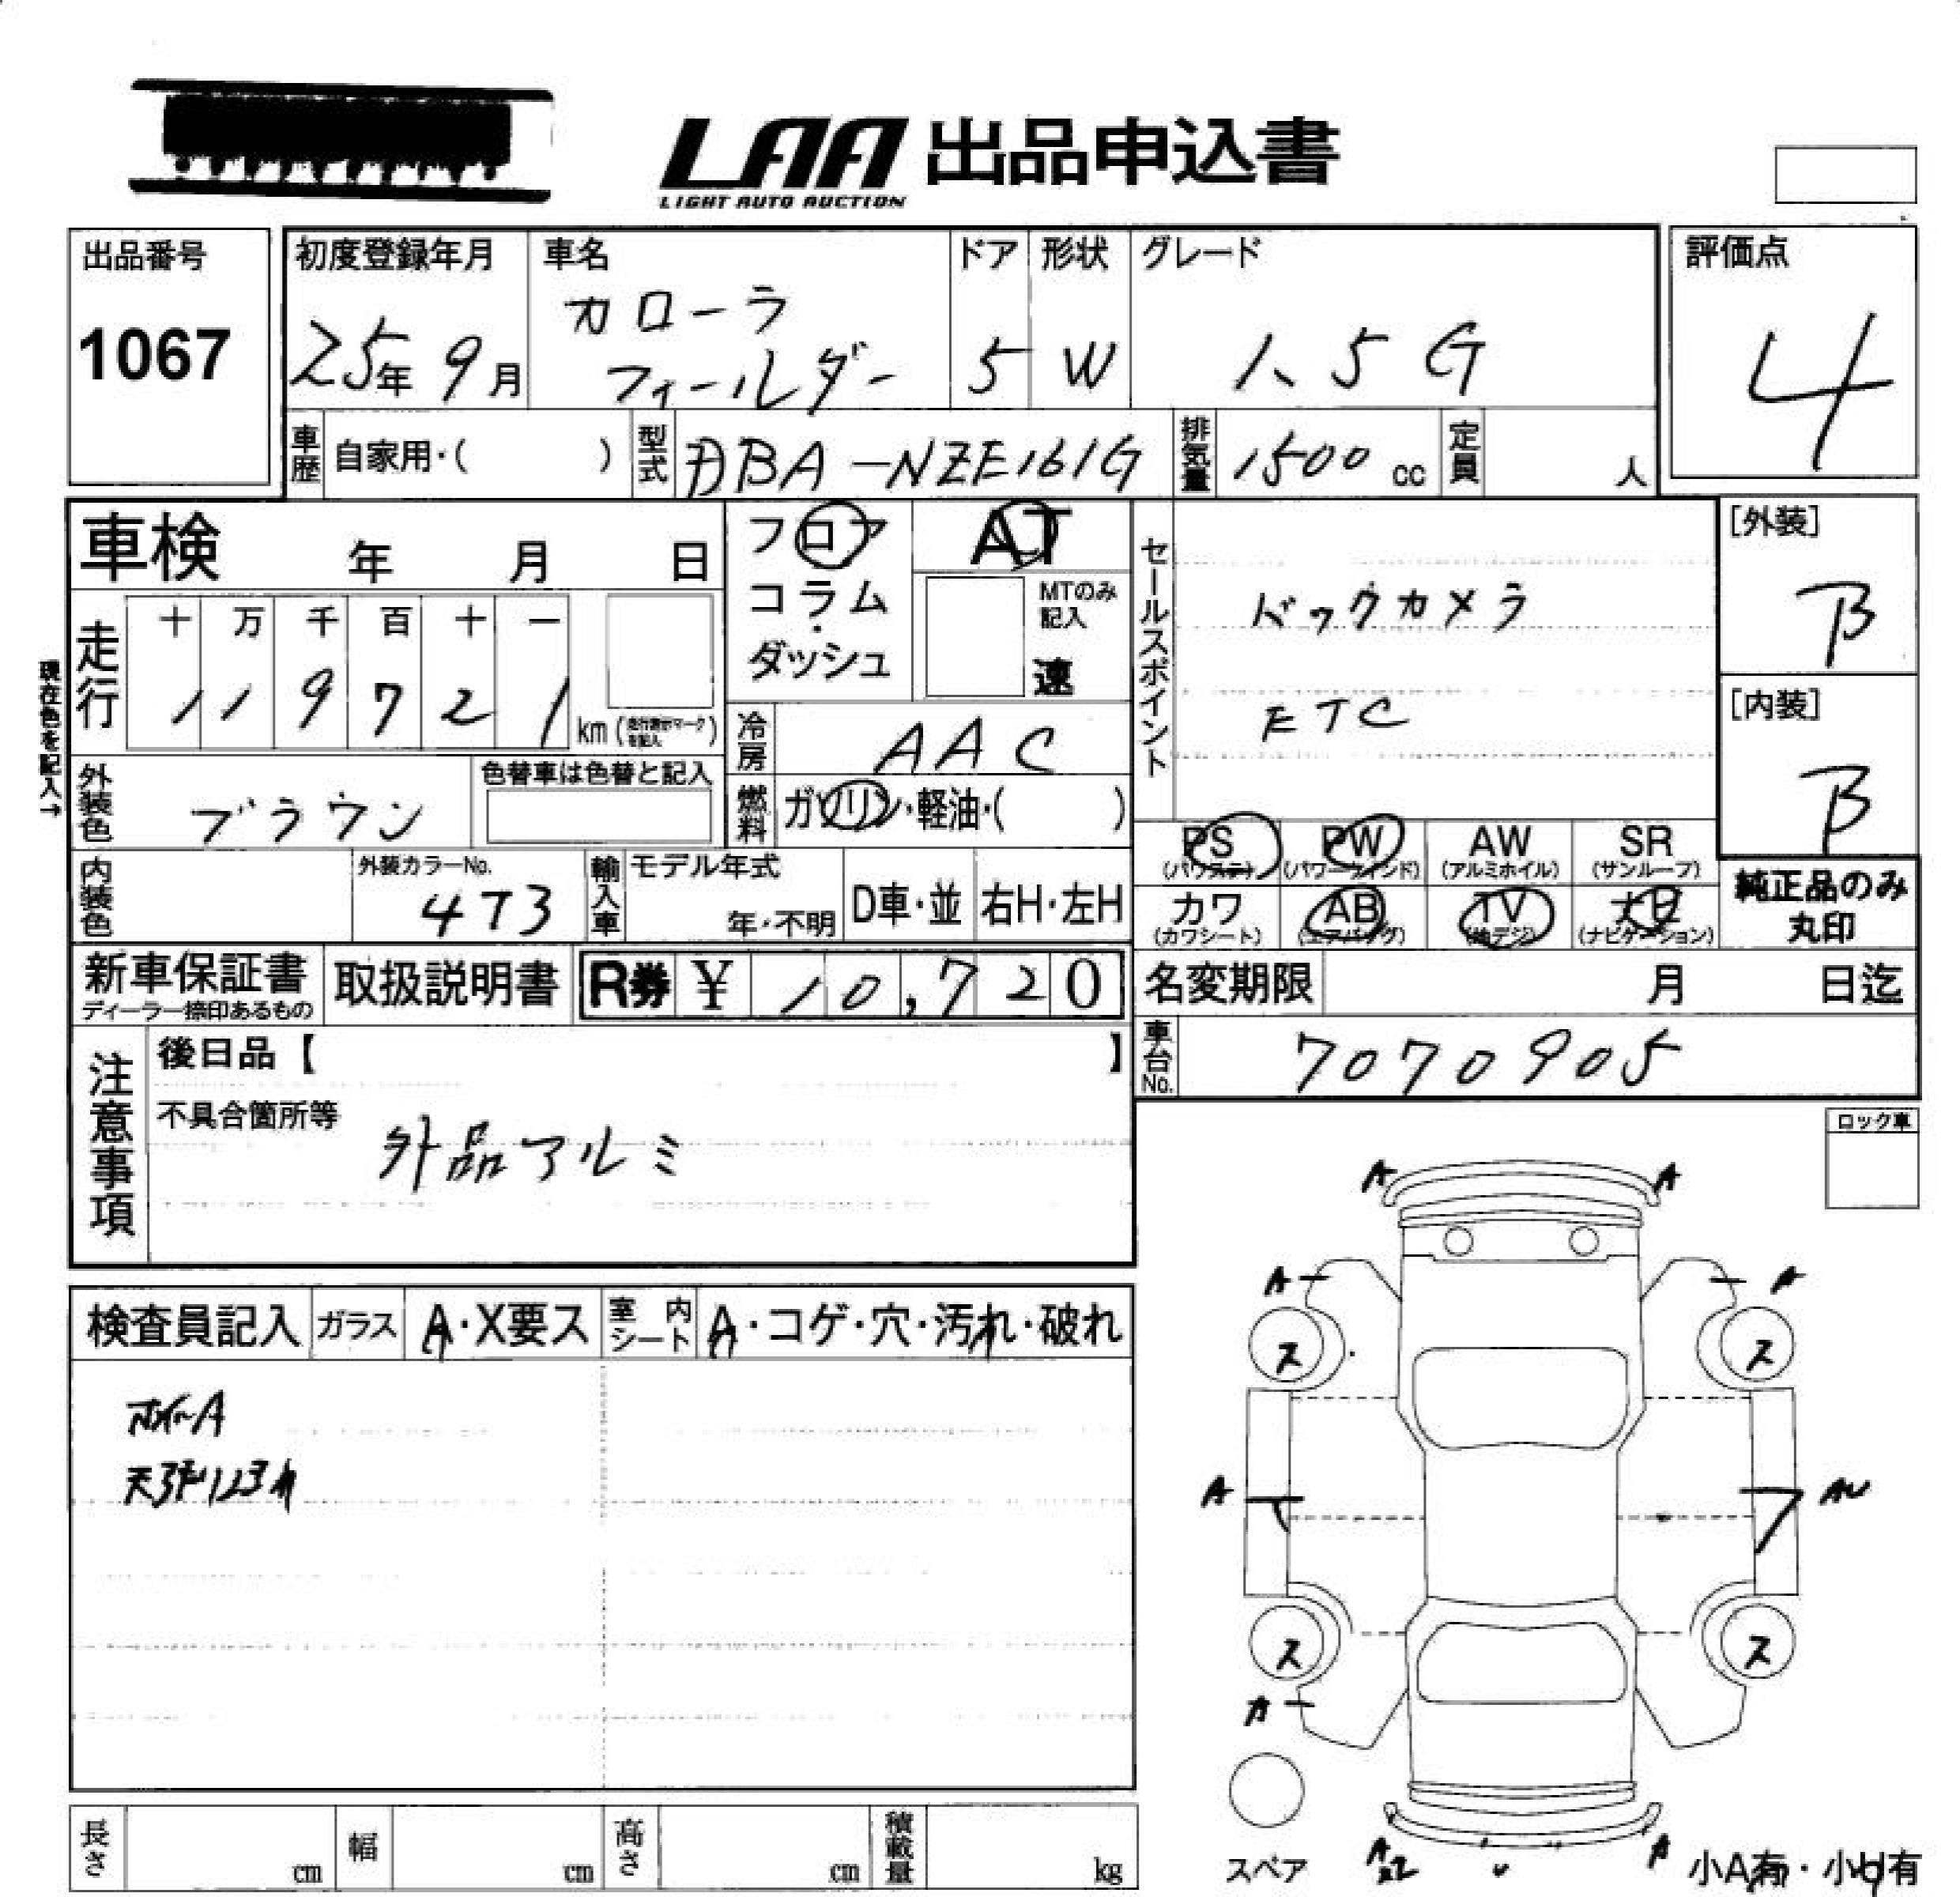 LAA 出品申込書
LIGHT AUTO AUCTION
出品番号
1067
初度登録年月
25年 9月
車名
カローラ
フィールダー
ドア
5
形状
W
グレード
1.5G
評価点
4
車歴 自家用・( )
型式 DBA-NZE161G
排気量 1500 cc
定員 人
車検 年 月 日
現在色を記入→
走行
十 万 千 百 十 一
1 1 9 7 2 1 km (走行表示マークを記入)
外装色 ブラウン
色替車は色替と記入
内装色
外装カラーNo.
4T3
フロア
コラム
・
ダッシュ
AT
MTのみ
記入
速
冷房 AAC
燃料 ガソリン・軽油・( )
輸入車 モデル年式
年・不明 D車・並 右H・左H
セールスポイント
バックカメラ
ETC
[外装]
B
[内装]
B
PS (パワステ) PW (パワーウインド) AW (アルミホイル) SR (サンルーフ)
カワ (カワシート) AB (エアバッグ) TV (地デジ) ナビ (ナビゲーション)
純正品のみ
丸印
新車保証書
ディーラー捺印あるもの
取扱説明書
R券 ¥ 10,720
名変期限 月 日迄
車台No. 7070905
注意事項
後日品【 】
不具合箇所等
外品アルミ
ロック車
検査員記入 ガラス A・X要ス 室内シート A・コゲ・穴・汚れ・破れ
ホイールA
天張り汚れ
A A
A A
ス ス
A AU
ス ス
A
スペア
A A
小A有・小U有
長さ cm 幅 cm 高さ cm 積載量 kg